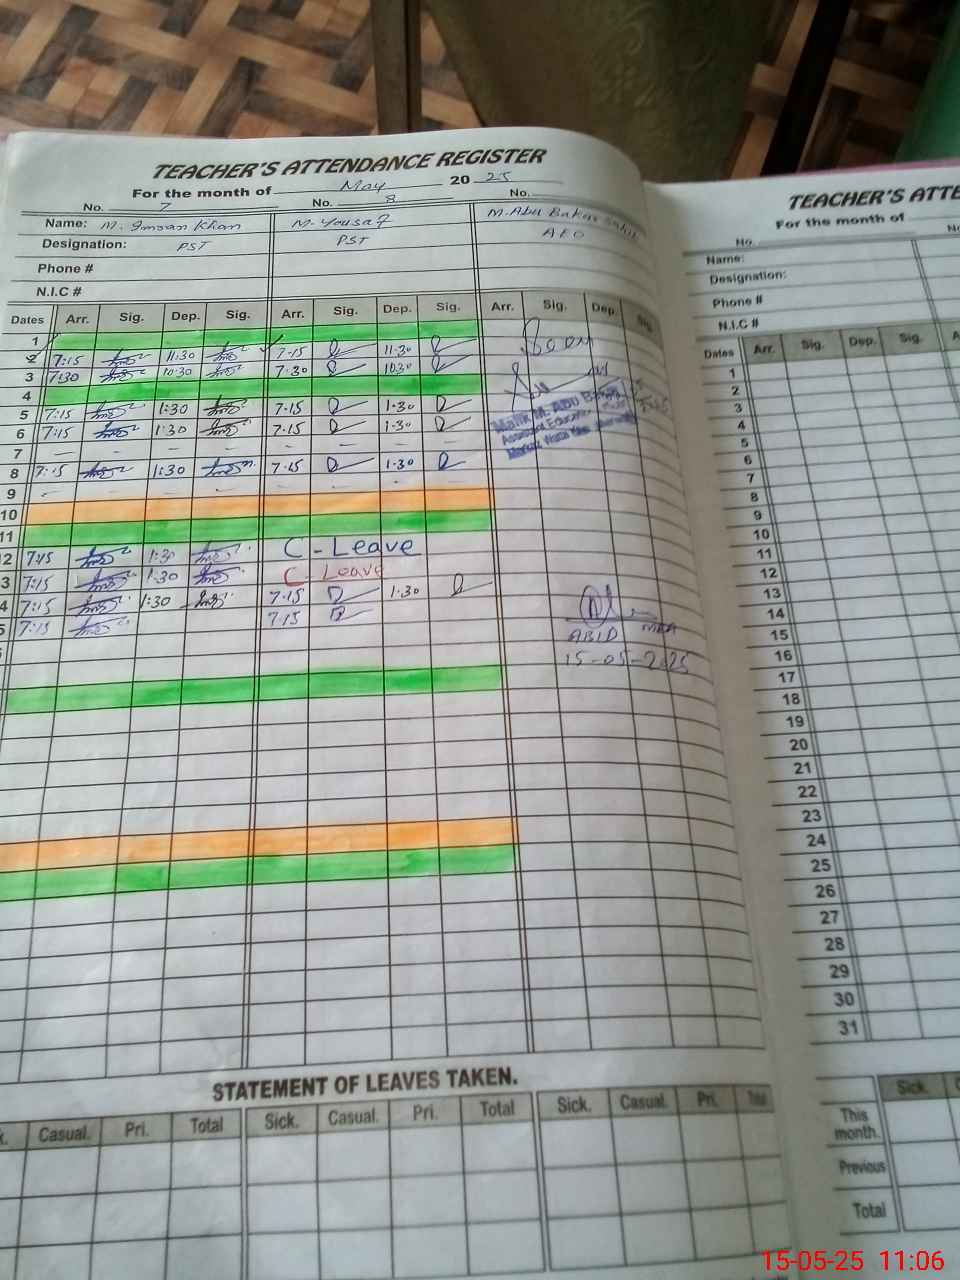 TEACHER'S ATTENDANCE REGISTER
For the month of May 20 25
No. 7 No. 8 No.
Name: M. Imran Khan M. Yousaf M. Abu Bakar Sahib
Designation: PST PST AEO
Phone #
N.I.C #
Dates Arr. Sig. Dep. Sig. Arr. Sig. Dep. Sig. Arr. Sig. Dep. Sig.
1
2 7:15 11:30 7-15 11-30
3 7:30 10:30 7-30 10:30
4
5 7:15 1:30 7-15 1-30
6 7:15 1:30 7-15 1-30
7 — — — — — — — —
8 7:15 1:30 7-15 1-30
9 - - - - - - - -
10
11
12 7:15 1:30 C-Leave
13 7:15 1:30 C-Leave
14 7:15 1:30 7-15 1-30
15 7:15 7-15
Malik M. ABU Bakar
Assistant Education
ABID MEA
15-05-2025
STATEMENT OF LEAVES TAKEN.
Casual. Pri. Total Sick. Casual. Pri. Total Sick. Casual. Pri. Total
TEACHER'S ATTE
For the month of
No.
Name:
Designation:
Phone #
N.I.C #
Dates Arr. Sig. Dep. Sig. A
1
2
3
4
5
6
7
8
9
10
11
12
13
14
15
16
17
18
19
20
21
22
23
24
25
26
27
28
29
30
31
Sick. C
This month.
Previous
Total
15-05-25 11:06